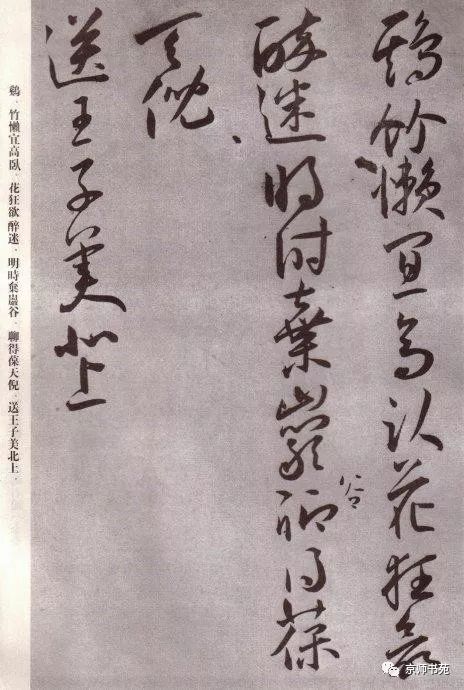 鷄竹懶宜高臥花狂欲
醉迷明時棄巖谷聊得葆
天倪
送王子美北上
鷄、竹懶宜高臥、花狂欲醉迷、明時棄巖谷、聊得葆天倪、送王子美北上、
京师书苑